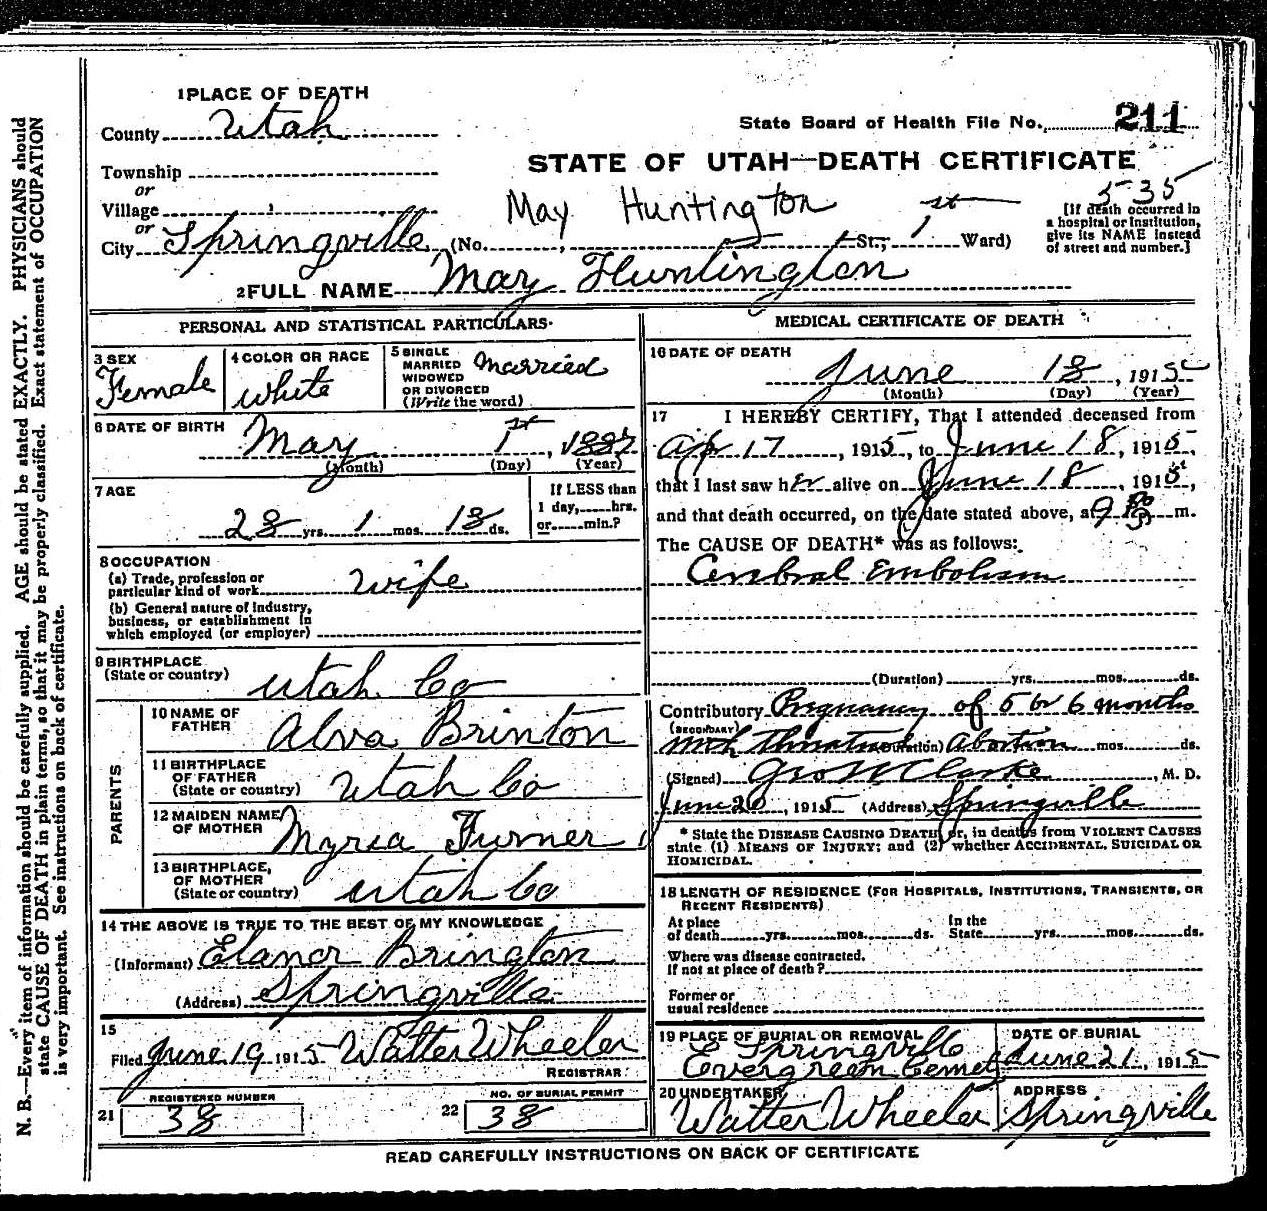 1 PLACE OF DEATH
County Utah
Township
or
Village
or
City Springville (No. , St.; 1st Ward)
State Board of Health File No. 211
STATE OF UTAH—DEATH CERTIFICATE
535
May Huntington
[If death occurred in
a hospital or institution,
give its NAME instead
of street and number.]
2 FULL NAME May Huntington
PERSONAL AND STATISTICAL PARTICULARS
3 SEX
Female
4 COLOR OR RACE
White
5 SINGLE
MARRIED
WIDOWED
OR DIVORCED
(Write the word)
Married
6 DATE OF BIRTH
May 1st, 1887
(Month) (Day) (Year)
7 AGE
28 yrs. 1 mos. 18 ds.
If LESS than
1 day, hrs.
or min.?
8 OCCUPATION
(a) Trade, profession or
particular kind of work wife
(b) General nature of industry,
business, or establishment in
which employed (or employer)
9 BIRTHPLACE
(State or country)
Utah Co
PARENTS
10 NAME OF
FATHER
Alva Brinton
11 BIRTHPLACE
OF FATHER
(State or country)
Utah Co
12 MAIDEN NAME
OF MOTHER
Myria Turner
13 BIRTHPLACE,
OF MOTHER
(State or country)
Utah Co
14 THE ABOVE IS TRUE TO THE BEST OF MY KNOWLEDGE
(Informant) Elanor Brington
(Address) Springville
15
Filed June 19 1915 Walter Wheeler
REGISTRAR
21 REGISTERED NUMBER
38
22 NO. OF BURIAL PERMIT
38
MEDICAL CERTIFICATE OF DEATH
16 DATE OF DEATH
June 18, 1915
(Month) (Day) (Year)
17 I HEREBY CERTIFY, That I attended deceased from
Apr 17, 1915, to June 18, 1915,
that I last saw her alive on June 18, 1915,
and that death occurred, on the date stated above, at 9 m.
The CAUSE OF DEATH* was as follows:
Cerebral Embolism
(Duration) yrs. mos. ds.
Contributory Pregnancy of 5 or 6 months
(SECONDARY)
with threatened (Duration) Abortion mos. ds.
(Signed) Geo W Clarke, M. D.
June 20, 1915 (Address) Springville
* State the DISEASE CAUSING DEATH, or, in deaths from VIOLENT CAUSES
state (1) MEANS OF INJURY; and (2) whether ACCIDENTAL, SUICIDAL OR
HOMICIDAL.
18 LENGTH OF RESIDENCE (FOR HOSPITALS, INSTITUTIONS, TRANSIENTS, OR
RECENT RESIDENTS)
At place
of death yrs. mos. ds.
In the
State yrs. mos. ds.
Where was disease contracted,
if not at place of death?
Former or
usual residence
19 PLACE OF BURIAL OR REMOVAL
E Springville
Evergreen Cemet
DATE OF BURIAL
June 21, 1915
20 UNDERTAKER
Walter Wheeler
ADDRESS
Springville
READ CAREFULLY INSTRUCTIONS ON BACK OF CERTIFICATE
N. B.—Every item of information should be carefully supplied. AGE should be stated EXACTLY. PHYSICIANS should
state CAUSE OF DEATH in plain terms, so that it may be properly classified. Exact statement of OCCUPATION
is very important. See instructions on back of certificate.